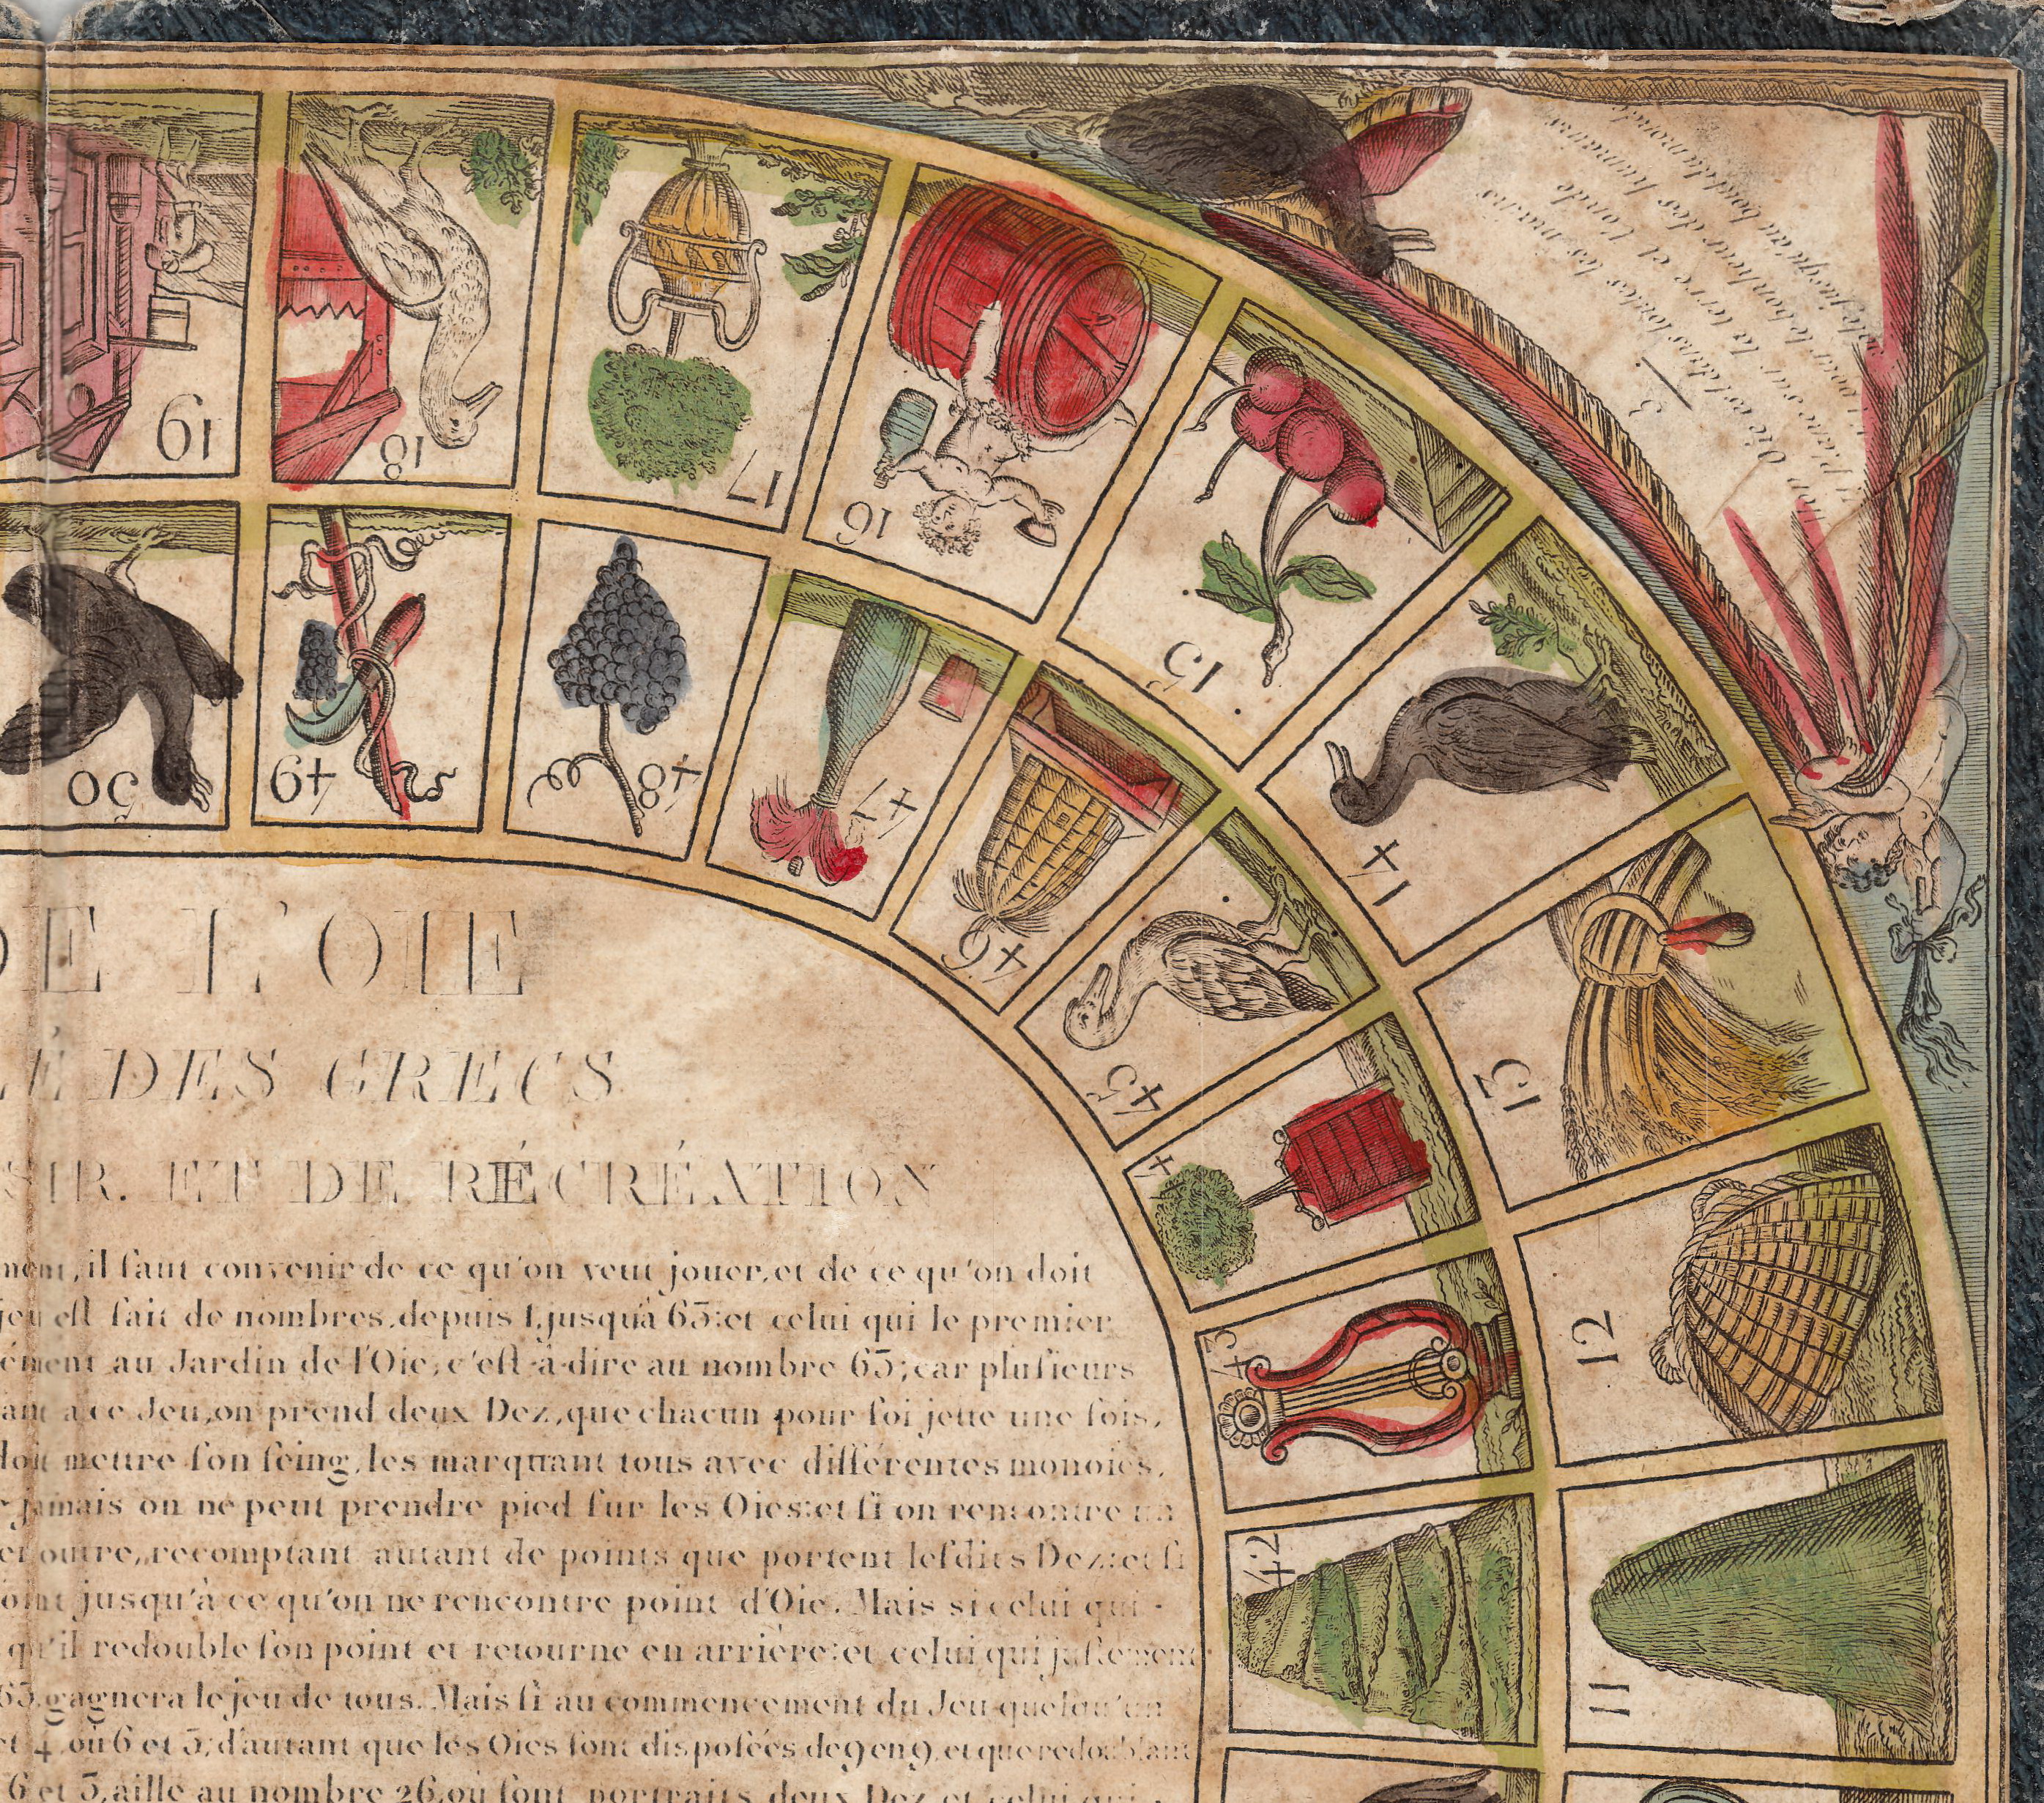 DE L'OIE
É DES GRECS
SIR. ET DE RÉCRÉATION
ment, il faut convenir de ce qu'on veut jouer, et de ce qu'on doit
jeu eſt fait de nombres, depuis 1, jusqu'à 63: et celui qui le premier
ément au Jardin de l'Oie, c'eſt-à-dire au nombre 63; car pluſieurs
ant à ce Jeu, on prend deux Dez, que chacun pour ſoi jette une fois,
doit mettre ſon ſeing, les marquant tous avec différentes monoies,
r jamais on ne peut prendre pied ſur les Oies: et ſi on rencontre un
er outre, recomptant autant de points que portent leſdits Dez: et ſi
oint jusqu'à ce qu'on ne rencontre point d'Oie. Mais si celui qui
qu'il redouble ſon point et retourne en arrière: et celui qui juſtement
63, gagnera le jeu de tous. Mais ſi au commencement du Jeu quelqu'un
et 4, ou 6 et 3, d'autant que les Oies ſont diſpoſées de 9 en 9, et que redoublant
6 et 3, aille au nombre 26, où ſont portraits deux Dez, et celui qui
11
12
13
14
15
16
17
18
19
42
43
45
46
47
48
49
50
3
est dans toutes les mains
Plane sur la terre et l'onde
pour le bonheur des humains
jusqu'au bout du monde